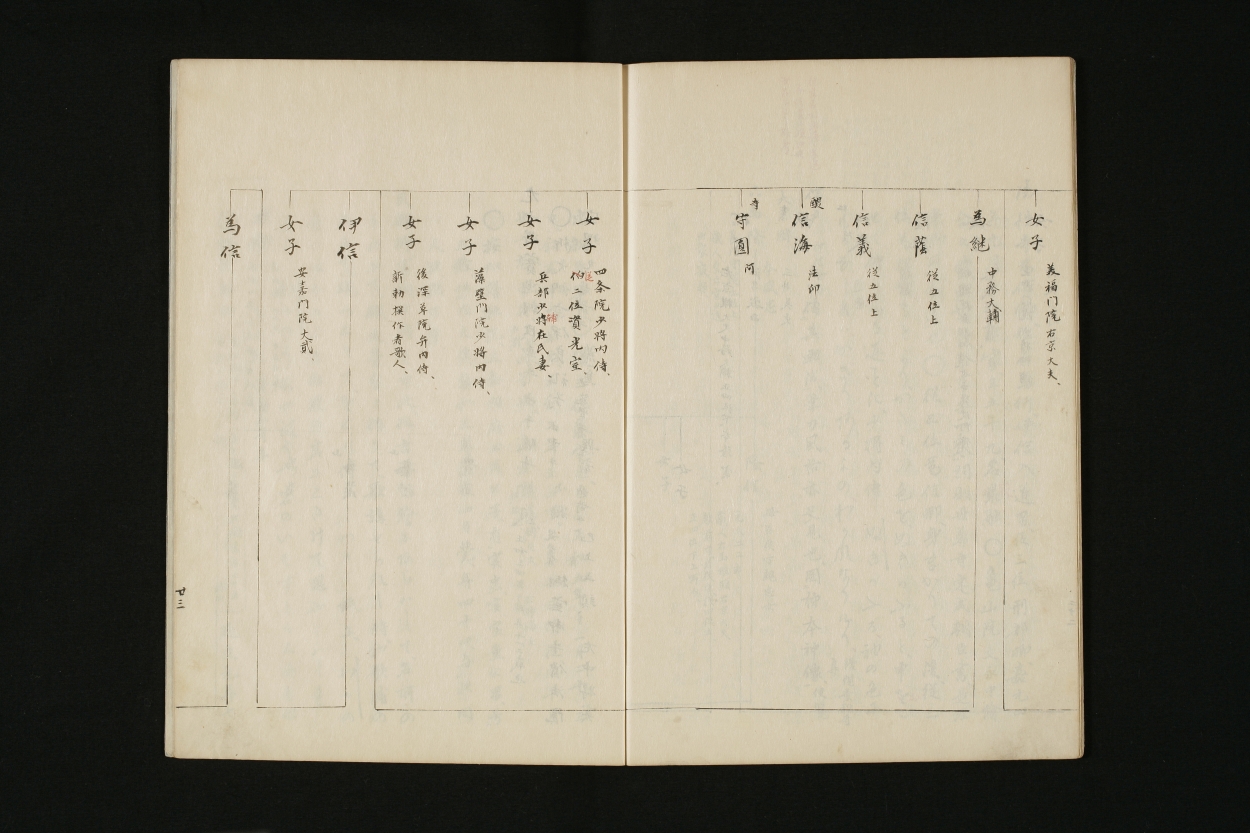 女子
美福門院右京大夫、
為継
中務大輔
信蔭
従五位上
信義
従五位上
醍
信海
法印
寺
守圓
阿
女子
四条院少将内侍、
伯二位資光室、
女子
兵部少将在氏妻、
女子
藻壁門院少将内侍、
女子
後深草院弁内侍、
新勅撰作者歌人、
伊信
女子
安嘉門院大貳、
為信
廿三